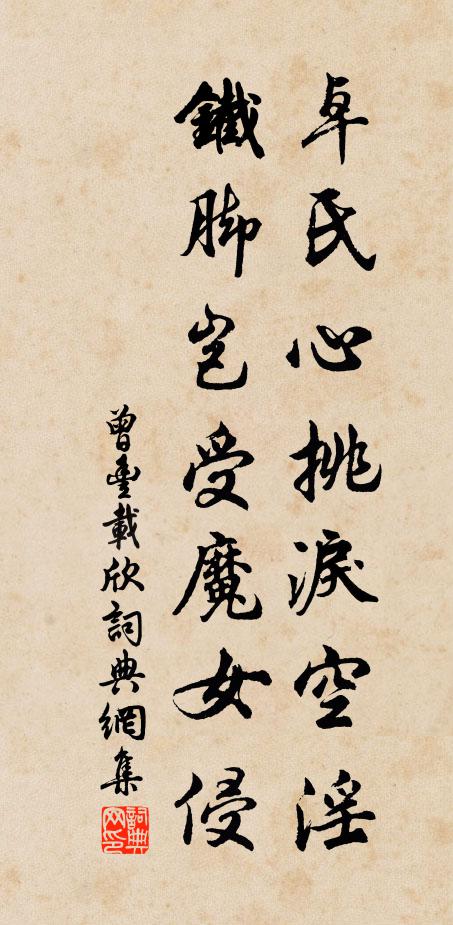 卓氏心挑淚空淫
鐵脚岂受魔女侵
曾豊載欣詞典網集
詞典網印